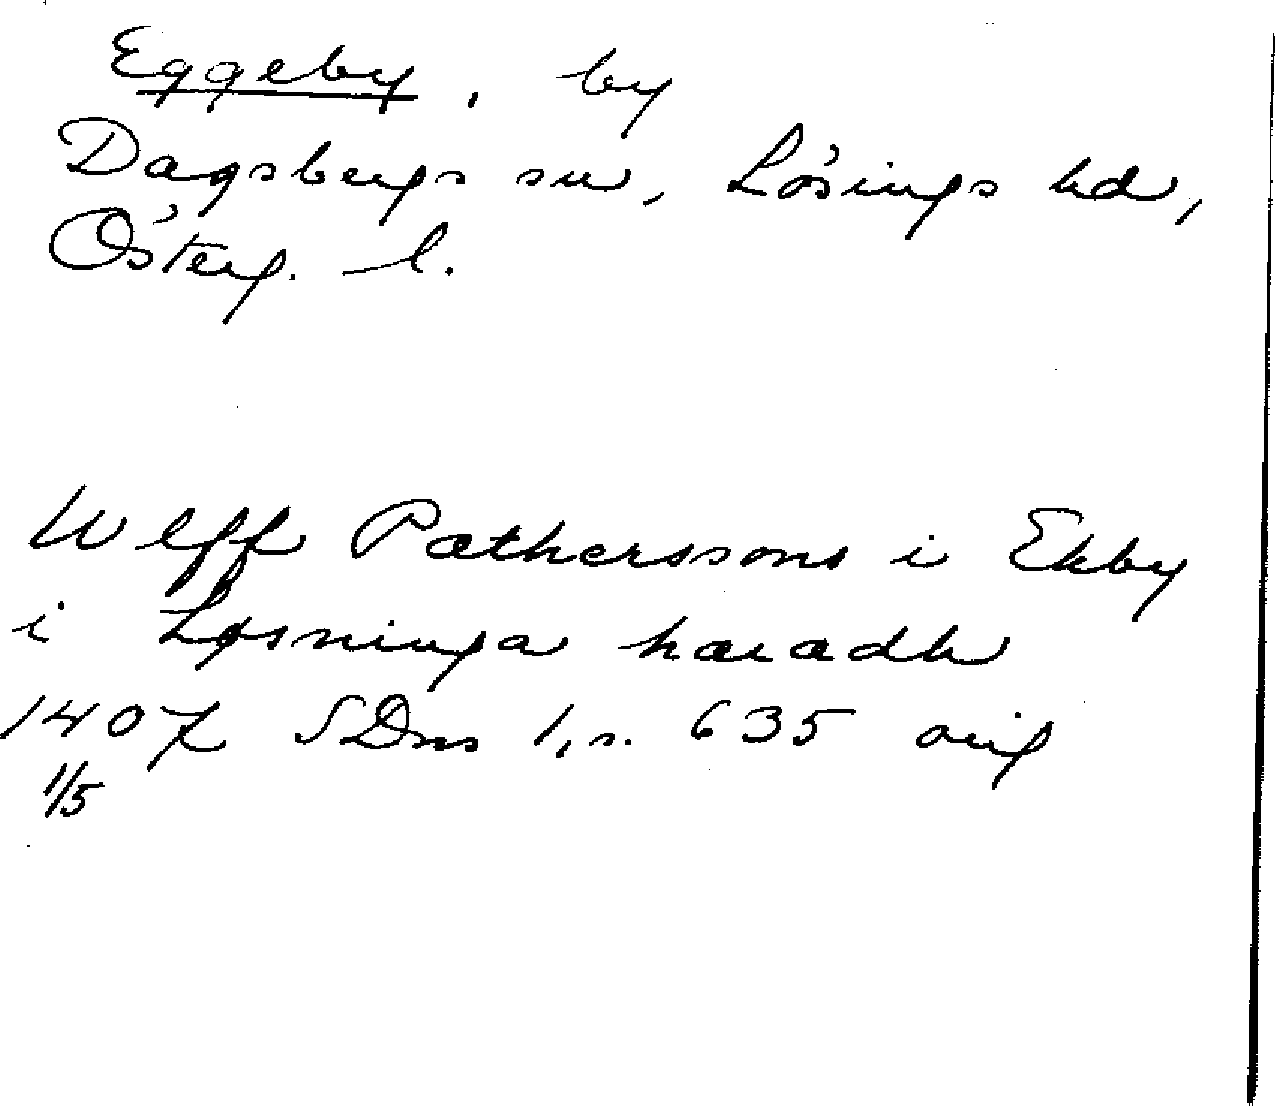 Eggeby, by
Dagsbergs sn, Lösings hd,
Österg. l.
Wlff Pætherssons i Ekby
i Løsninga haradh
1407 SDns 1, s. 635 orig
1/5